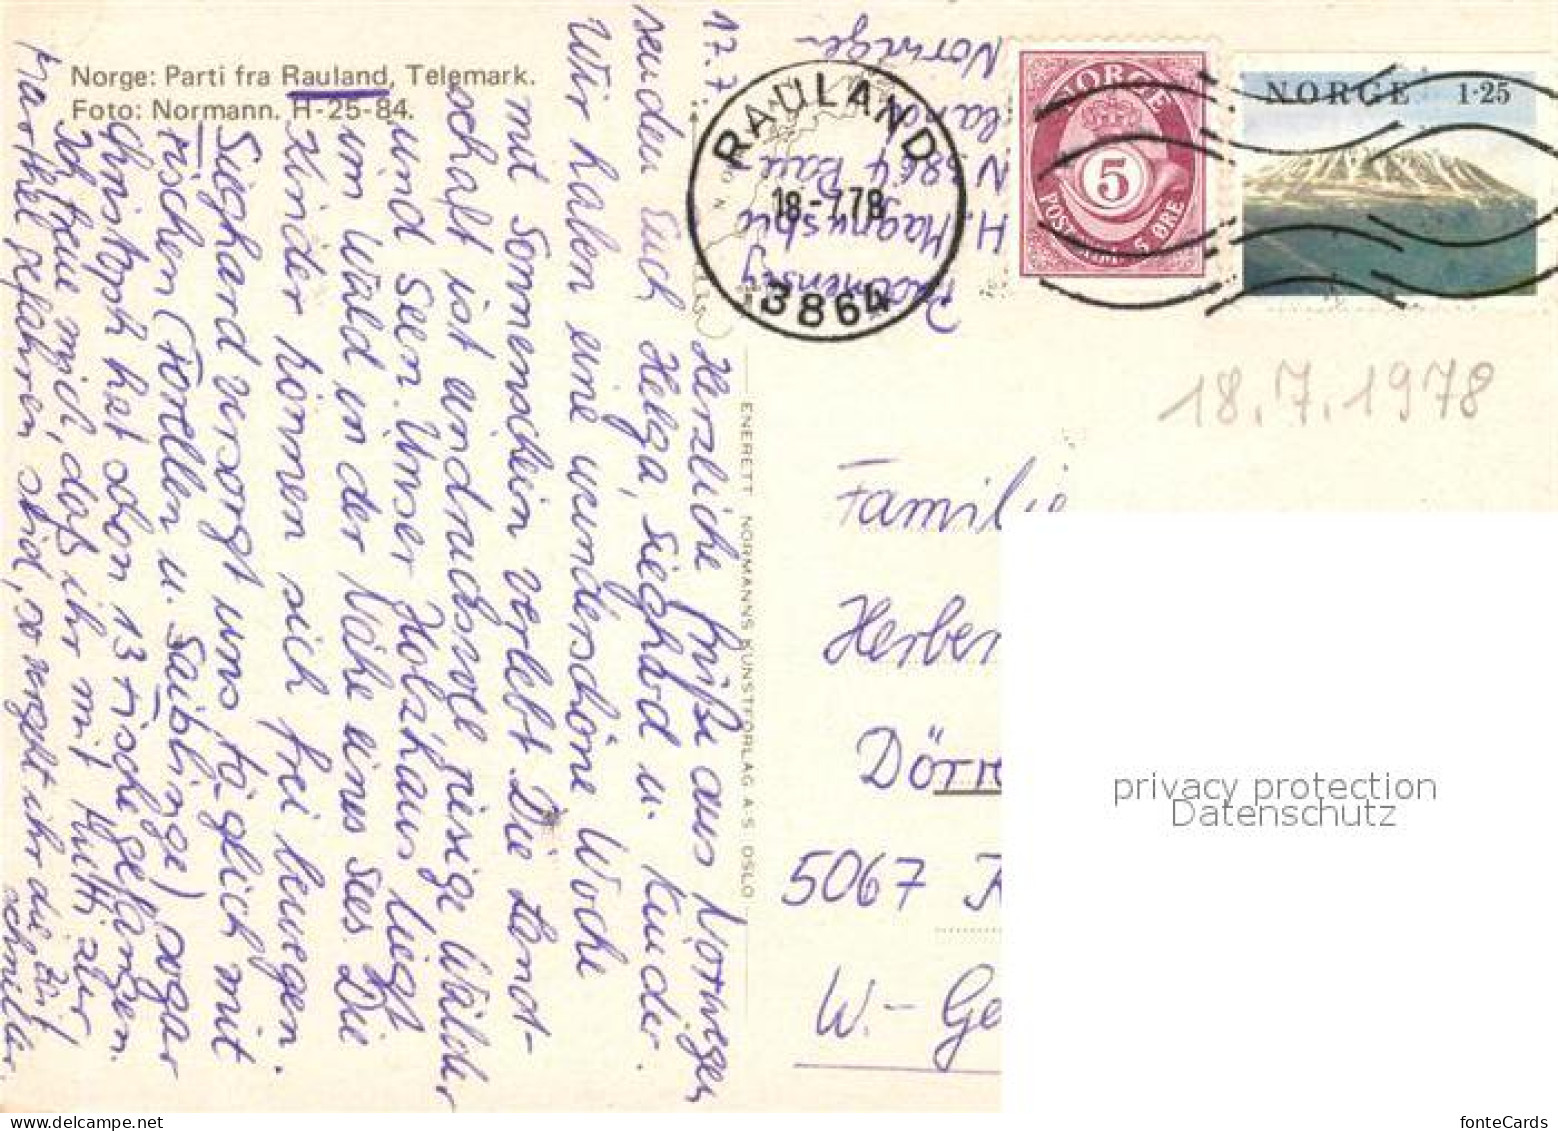 Norge: Parti fra Rauland, Telemark.
Foto: Normann. H-25-84.
17.7. Herzliche Grüße aus Norwegen
senden Euch Helga, Sieghard u. Kinder.
Wir haben eine wunderschöne Woche
mit Sonnenschein verlebt. Die Land-
schaft ist eindrucksvoll riesige Wälder
und Seen. Unser Holzhaus liegt
im Wald in der Nähe eines Sees. Die
Kinder können sich frei bewegen.
Sieghard versorgt uns täglich mit
Fischen (Forellen u. Saiblinge) sogar
Christoph hat schon 13 Fische gefangen.
Ich freue mich, daß ihr mit Mutti zur
gefahren seid, so vergeht ihr die Zeit
schneller.
ENERETT NORMANNS KUNSTFORLAG A-S OSLO
H. Magnushi
N 3864 Rauland
Norwegen
RAULAND
18-7.78
3864
NORGE
5
POSTFRIM. 5 ØRE
NORGE 1·25
18.7.1978
Familie
Herber
Dörr
5067 K
W.-Ge
privacy protection
Datenschutz
fonteCards